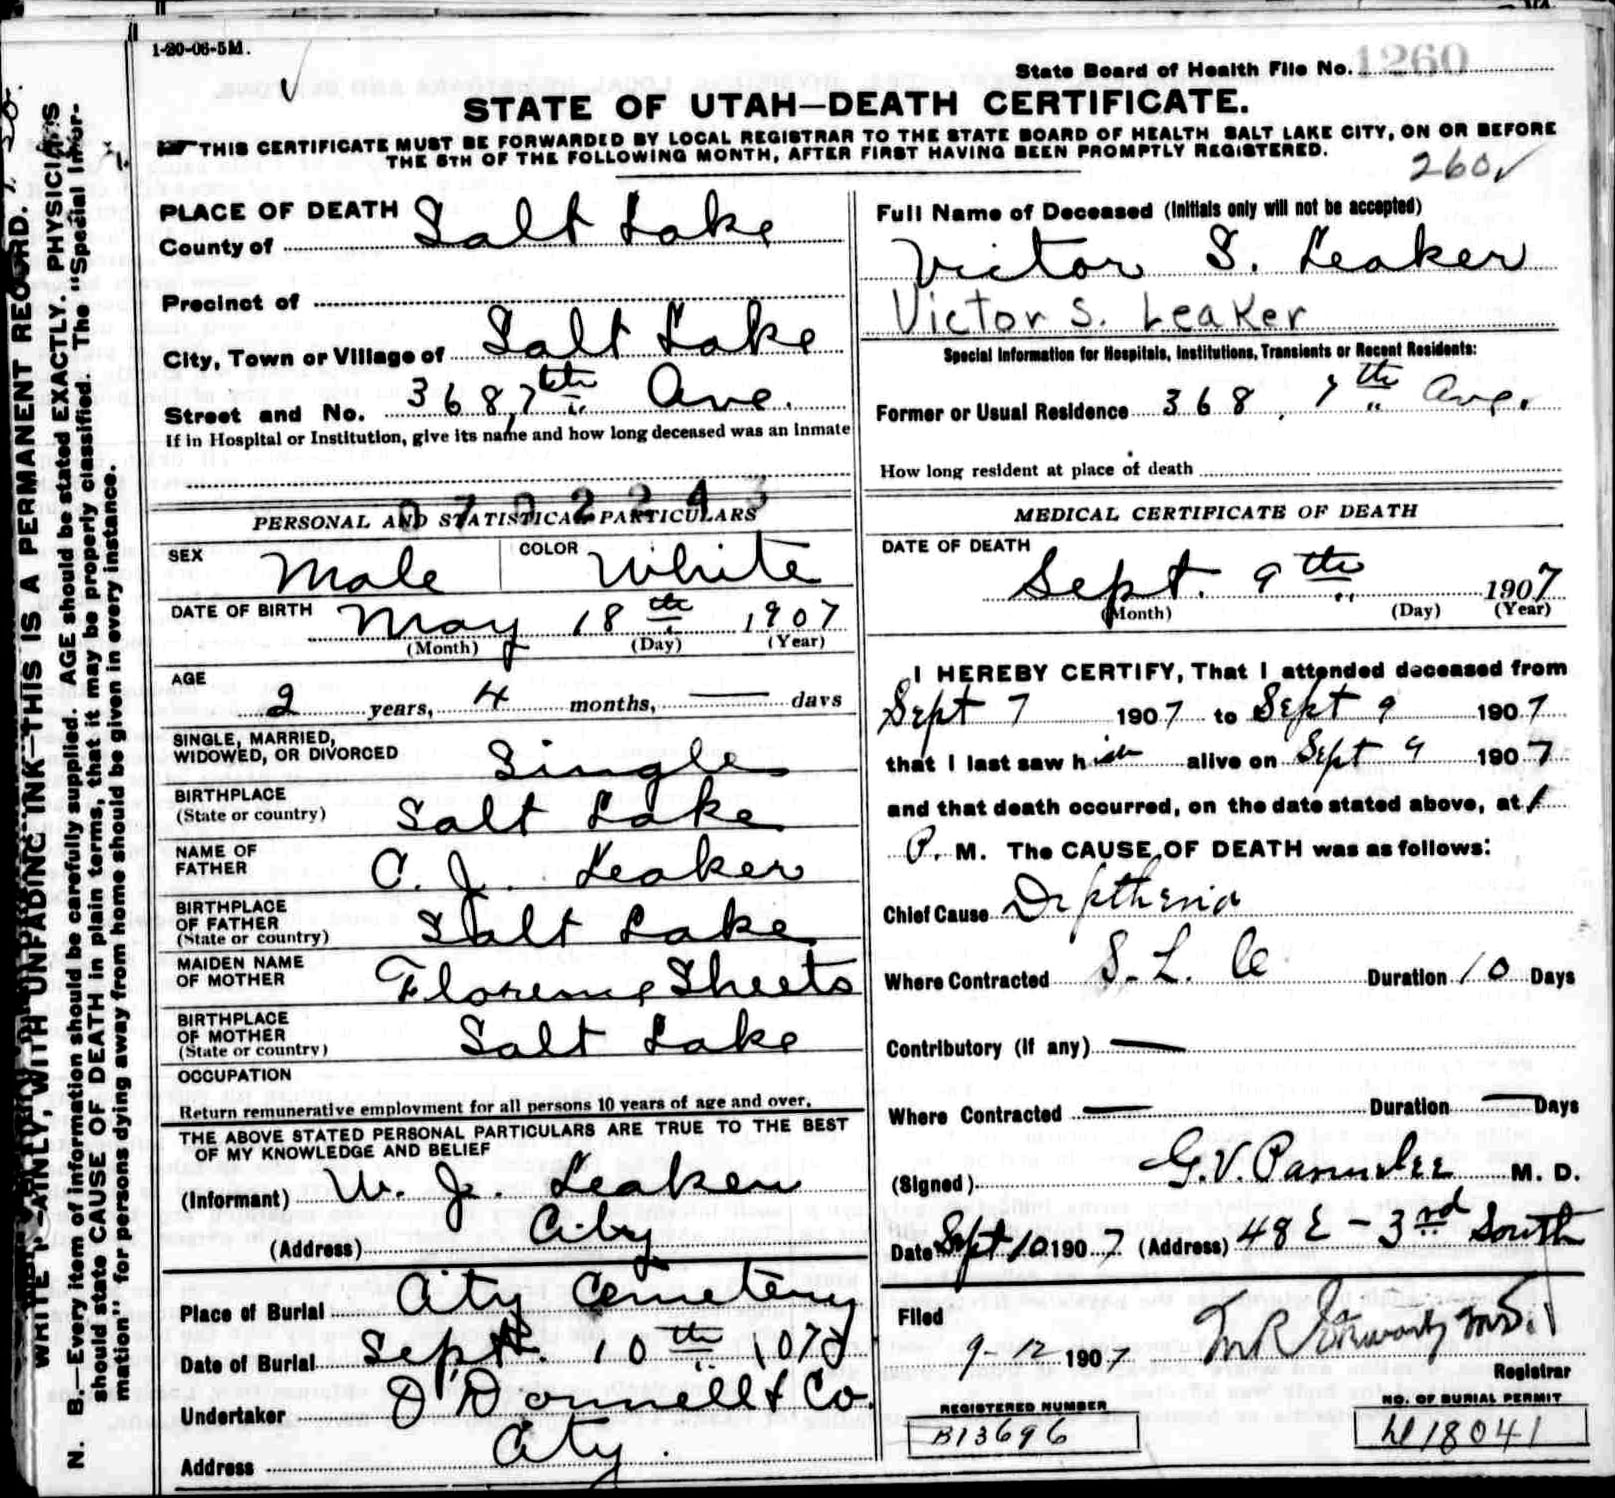 1-20-06-5M.
State Board of Health File No. 1260
STATE OF UTAH—DEATH CERTIFICATE.
THIS CERTIFICATE MUST BE FORWARDED BY LOCAL REGISTRAR TO THE STATE BOARD OF HEALTH SALT LAKE CITY, ON OR BEFORE
THE 5TH OF THE FOLLOWING MONTH, AFTER FIRST HAVING BEEN PROMPTLY REGISTERED.
260
WRITE PLAINLY, WITH UNFADING INK—THIS IS A PERMANENT RECORD.
N. B.—Every item of information should be carefully supplied. AGE should be stated EXACTLY. PHYSICIANS
should state CAUSE OF DEATH in plain terms, that it may be properly classified. The "Special Infor-
mation" for persons dying away from home should be given in every instance.
PLACE OF DEATH
County of Salt Lake
Precinct of
City, Town or Village of Salt Lake
Street and No. 368, 7th Ave.
If in Hospital or Institution, give its name and how long deceased was an inmate
0702243
PERSONAL AND STATISTICAL PARTICULARS
SEX Male COLOR White
DATE OF BIRTH May 18th 1907
(Month) (Day) (Year)
AGE
2 years, 4 months, — days
SINGLE, MARRIED,
WIDOWED, OR DIVORCED Single
BIRTHPLACE
(State or country) Salt Lake
NAME OF
FATHER C. J. Leaker
BIRTHPLACE
OF FATHER
(State or country) Salt Lake
MAIDEN NAME
OF MOTHER Florence Sheets
BIRTHPLACE
OF MOTHER
(State or country) Salt Lake
OCCUPATION
Return remunerative employment for all persons 10 years of age and over.
THE ABOVE STATED PERSONAL PARTICULARS ARE TRUE TO THE BEST
OF MY KNOWLEDGE AND BELIEF
(Informant) W. J. Leaker
(Address) City
Place of Burial City Cemetery
Date of Burial Sept. 10th 107
Undertaker O'Donnell & Co.
Address City.
Full Name of Deceased (Initials only will not be accepted)
Victor S. Leaker
Victor S. Leaker
Special Information for Hospitals, Institutions, Transients or Recent Residents:
Former or Usual Residence 368, 7th Ave.
How long resident at place of death
MEDICAL CERTIFICATE OF DEATH
DATE OF DEATH
Sept. 9th 1907
(Month) (Day) (Year)
I HEREBY CERTIFY, That I attended deceased from
Sept 7 1907 to Sept 9 1907
that I last saw him alive on Sept 9 1907
and that death occurred, on the date stated above, at 1
P. M. The CAUSE OF DEATH was as follows:
Chief Cause Diptheria
Where Contracted S. L. C Duration 10 Days
Contributory (if any) —
Where Contracted — Duration — Days
(Signed) G. V. M. D.
Date Sept 10 1907 (Address) 48 E - 3rd South
Filed
9-12 1907
Registrar
REGISTERED NUMBER
B13696
NO. OF BURIAL PERMIT
18041